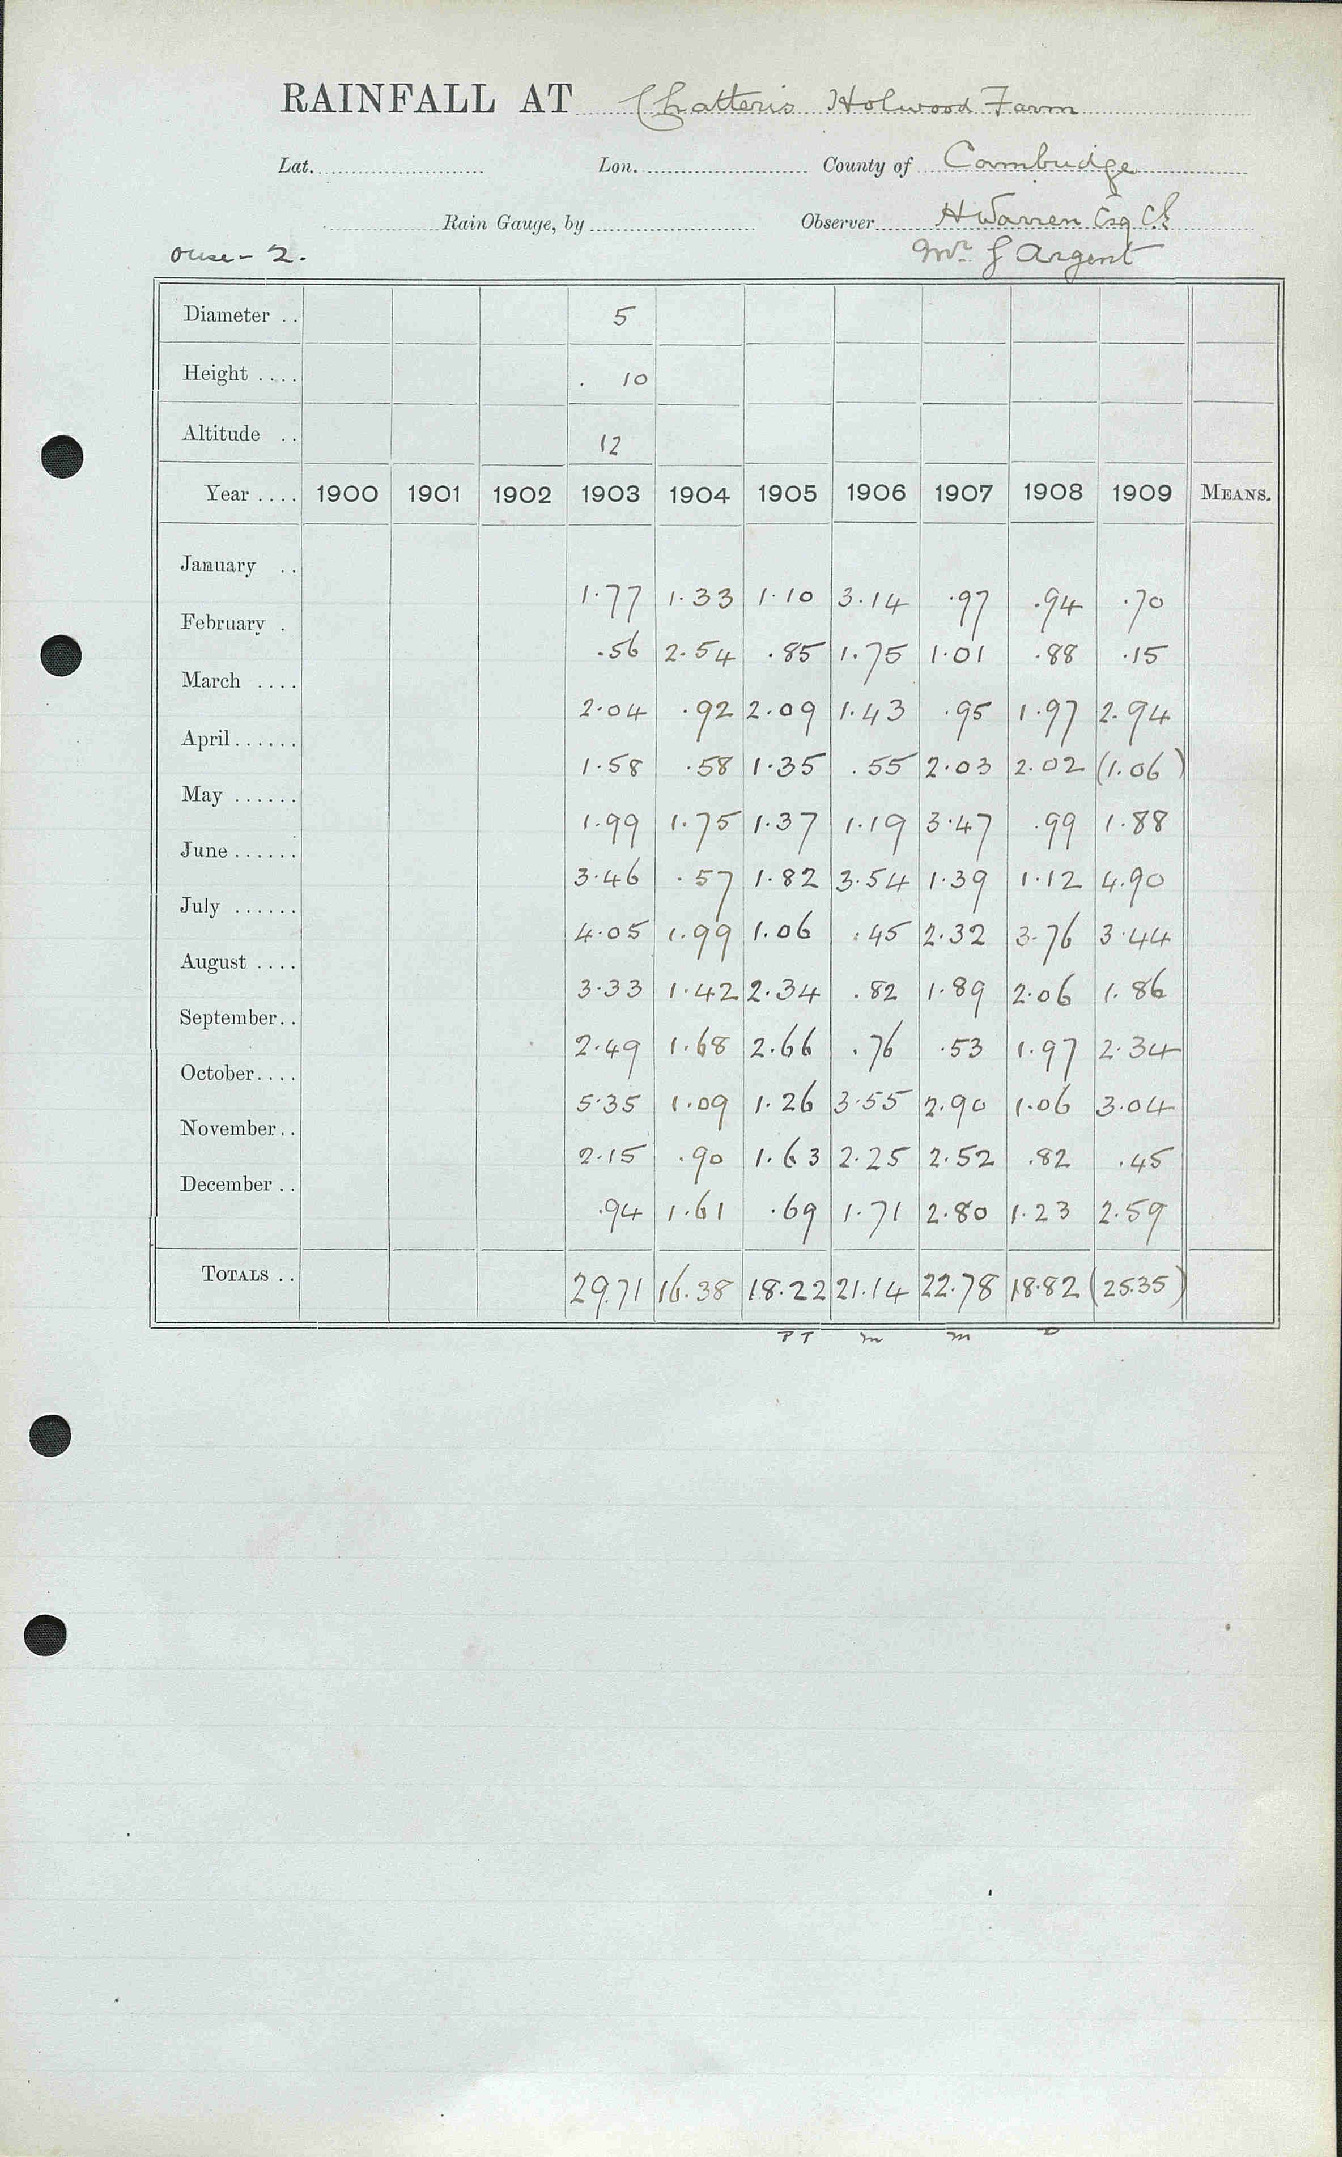 RAINFALL AT Chatteris Holwood Farm
Lat. Lon. County of Cambridge
Rain Gauge, by Observer H Warren Esq C.E
Ouse - 2. Mr. J Argent
Diameter .. 5
Height .... 10
Altitude .. 12
Year .... 1900 1901 1902 1903 1904 1905 1906 1907 1908 1909 MEANS.
January .. 1.77 1.33 1.10 3.14 .97 .94 .70
February . .56 2.54 .85 1.75 1.01 .88 .15
March .... 2.04 .92 2.09 1.43 .95 1.97 2.94
April...... 1.58 .58 1.35 .55 2.03 2.02 (1.06)
May ...... 1.99 1.75 1.37 1.19 3.47 .99 1.88
June...... 3.46 .57 1.82 3.54 1.39 1.12 4.90
July ...... 4.05 1.99 1.06 .45 2.32 3.76 3.44
August .... 3.33 1.42 2.34 .82 1.89 2.06 1.86
September.. 2.49 1.68 2.66 .76 .53 1.97 2.34
October.... 5.35 1.09 1.26 3.55 2.90 1.06 3.04
November.. 2.15 .90 1.63 2.25 2.52 .82 .45
December .. .94 1.61 .69 1.71 2.80 1.23 2.59
TOTALS .. 29.71 16.38 18.22 21.14 22.78 18.82 (25.35)
PT m m D